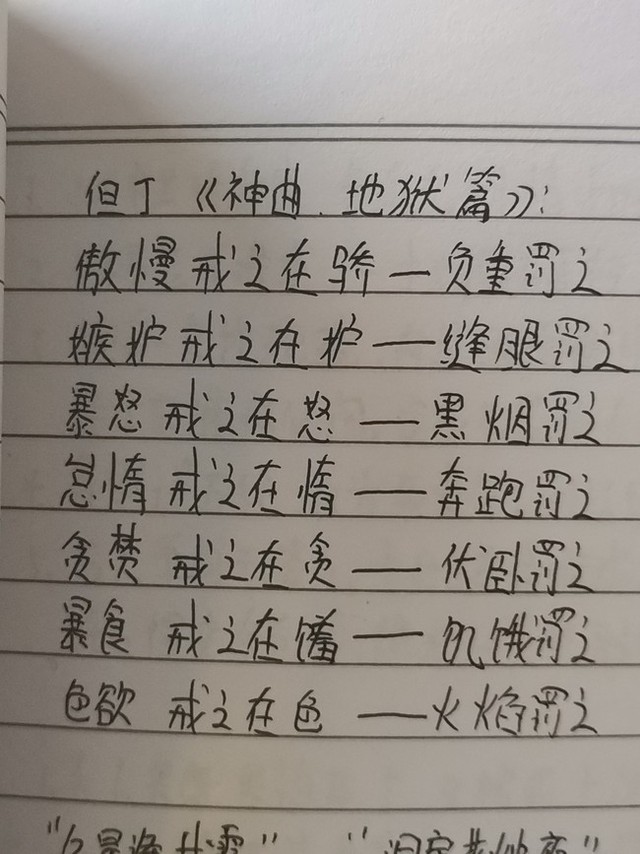 但丁《神曲．地狱篇》：
傲慢 戒之在骄 — 负重罚之
嫉妒 戒之在妒 — 缝眼罚之
暴怒 戒之在怒 — 黑烟罚之
怠惰 戒之在惰 — 奔跑罚之
贪婪 戒之在贪 — 伏卧罚之
暴食 戒之在馐 — 饥饿罚之
色欲 戒之在色 — 火焰罚之